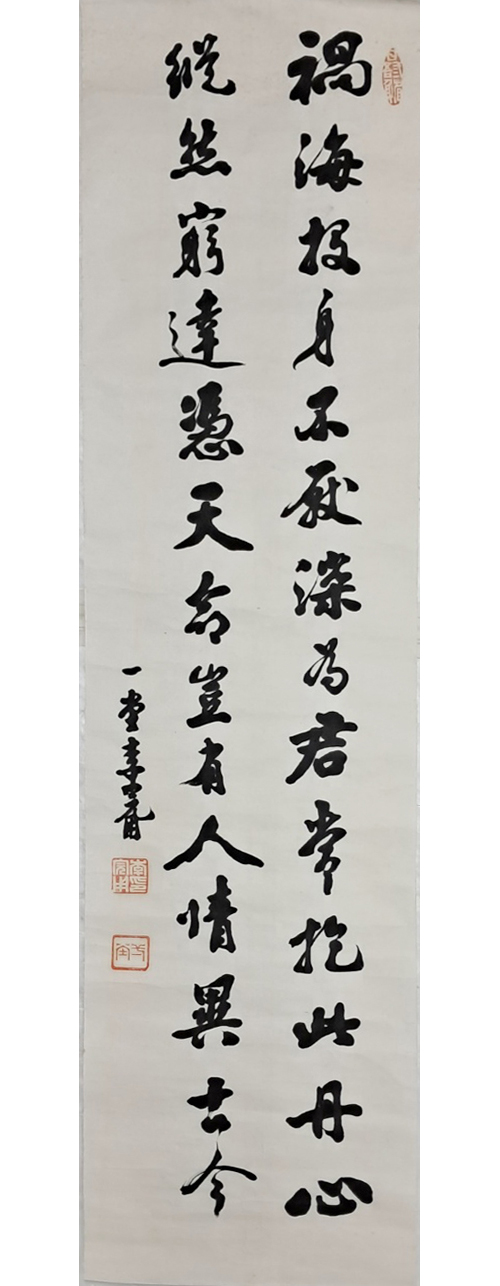 禍海投身不厭深為君常抱此丹心
縱然窮達憑天命豈有人情異古今
一堂李完用
李印完用